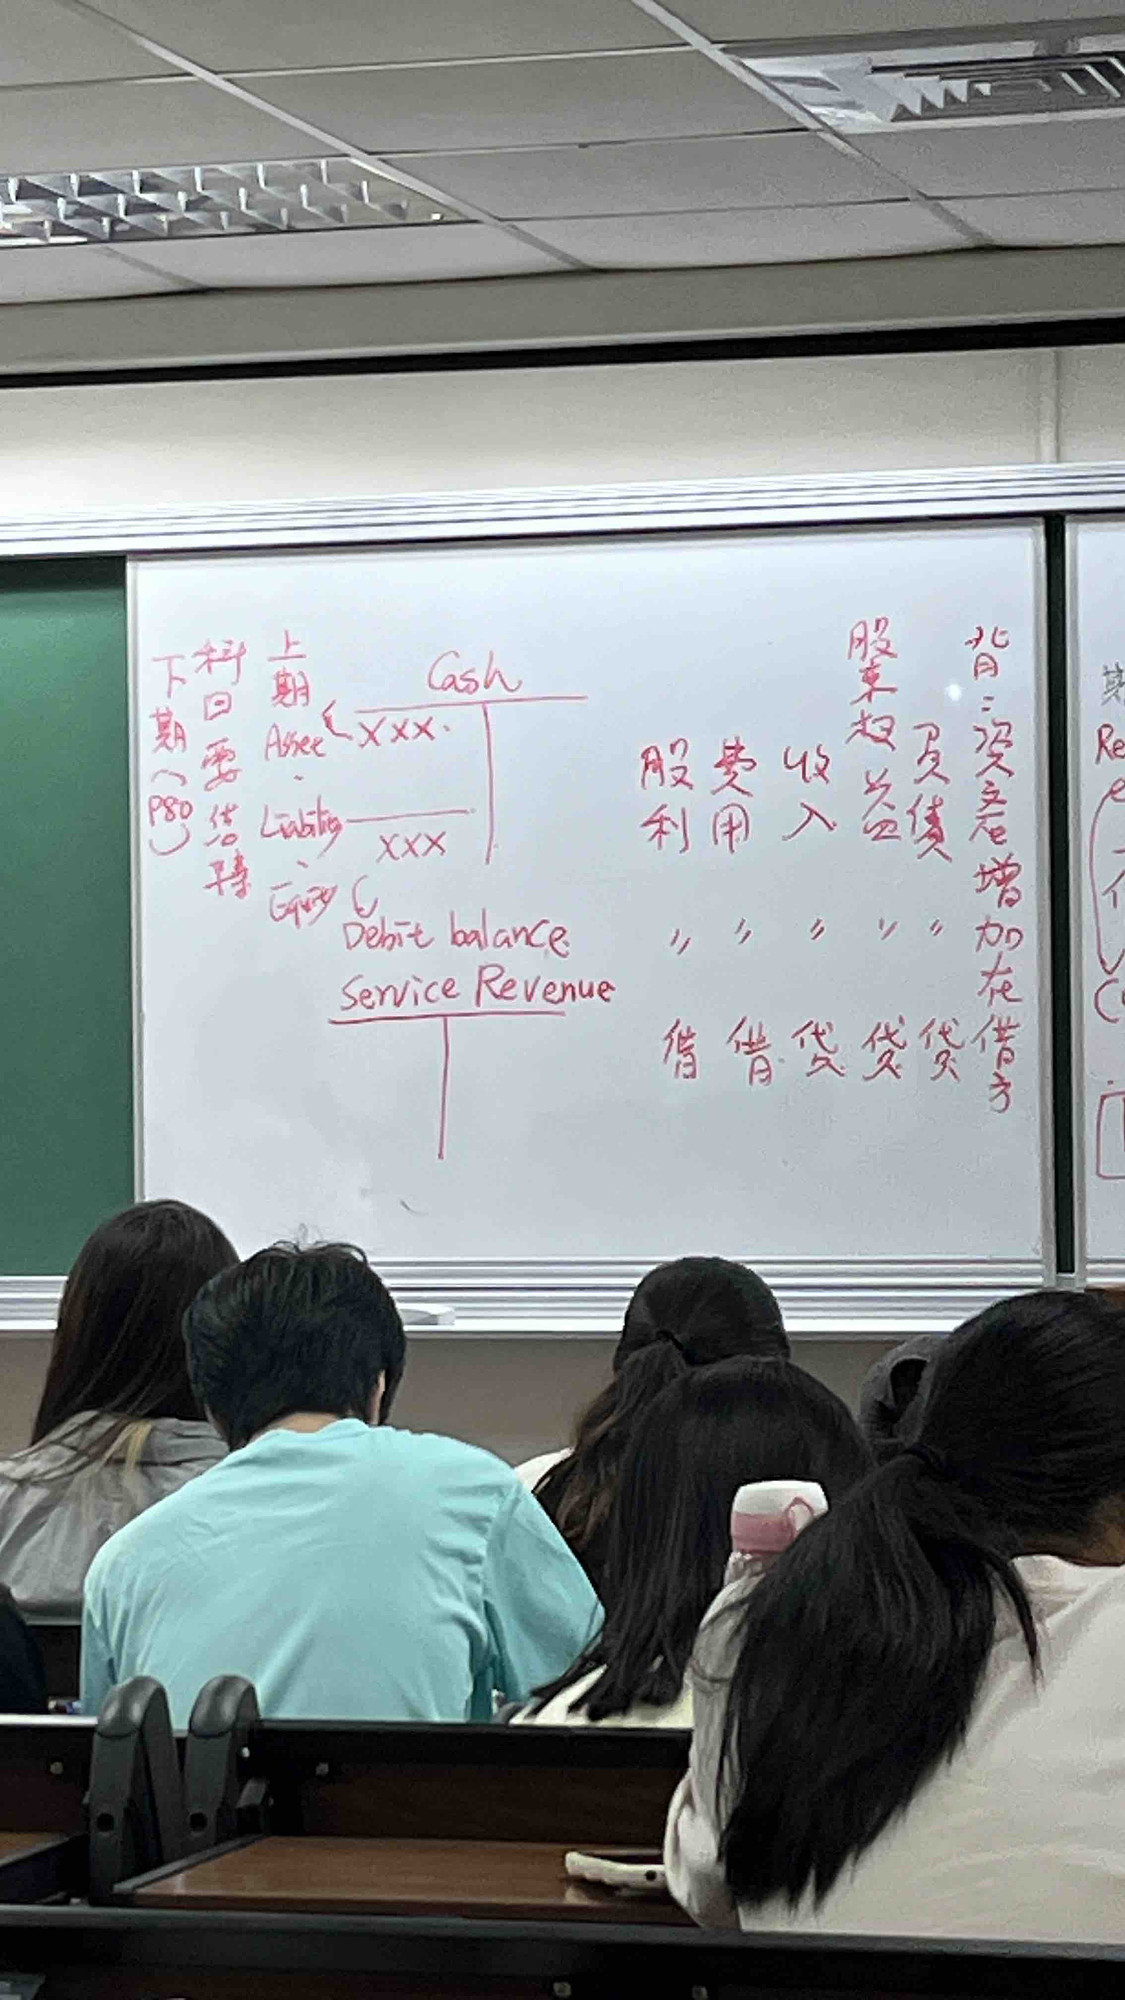 背：資產增加在借方
負債 〃 貸
股東权益 〃 貸
收入 〃 貸
費用 〃 借
股利 〃 借
Cash
XXX
XXX
Debit balance
Service Revenue
上期 Asset、Liability、Equity
科目要結轉
下期(P80)